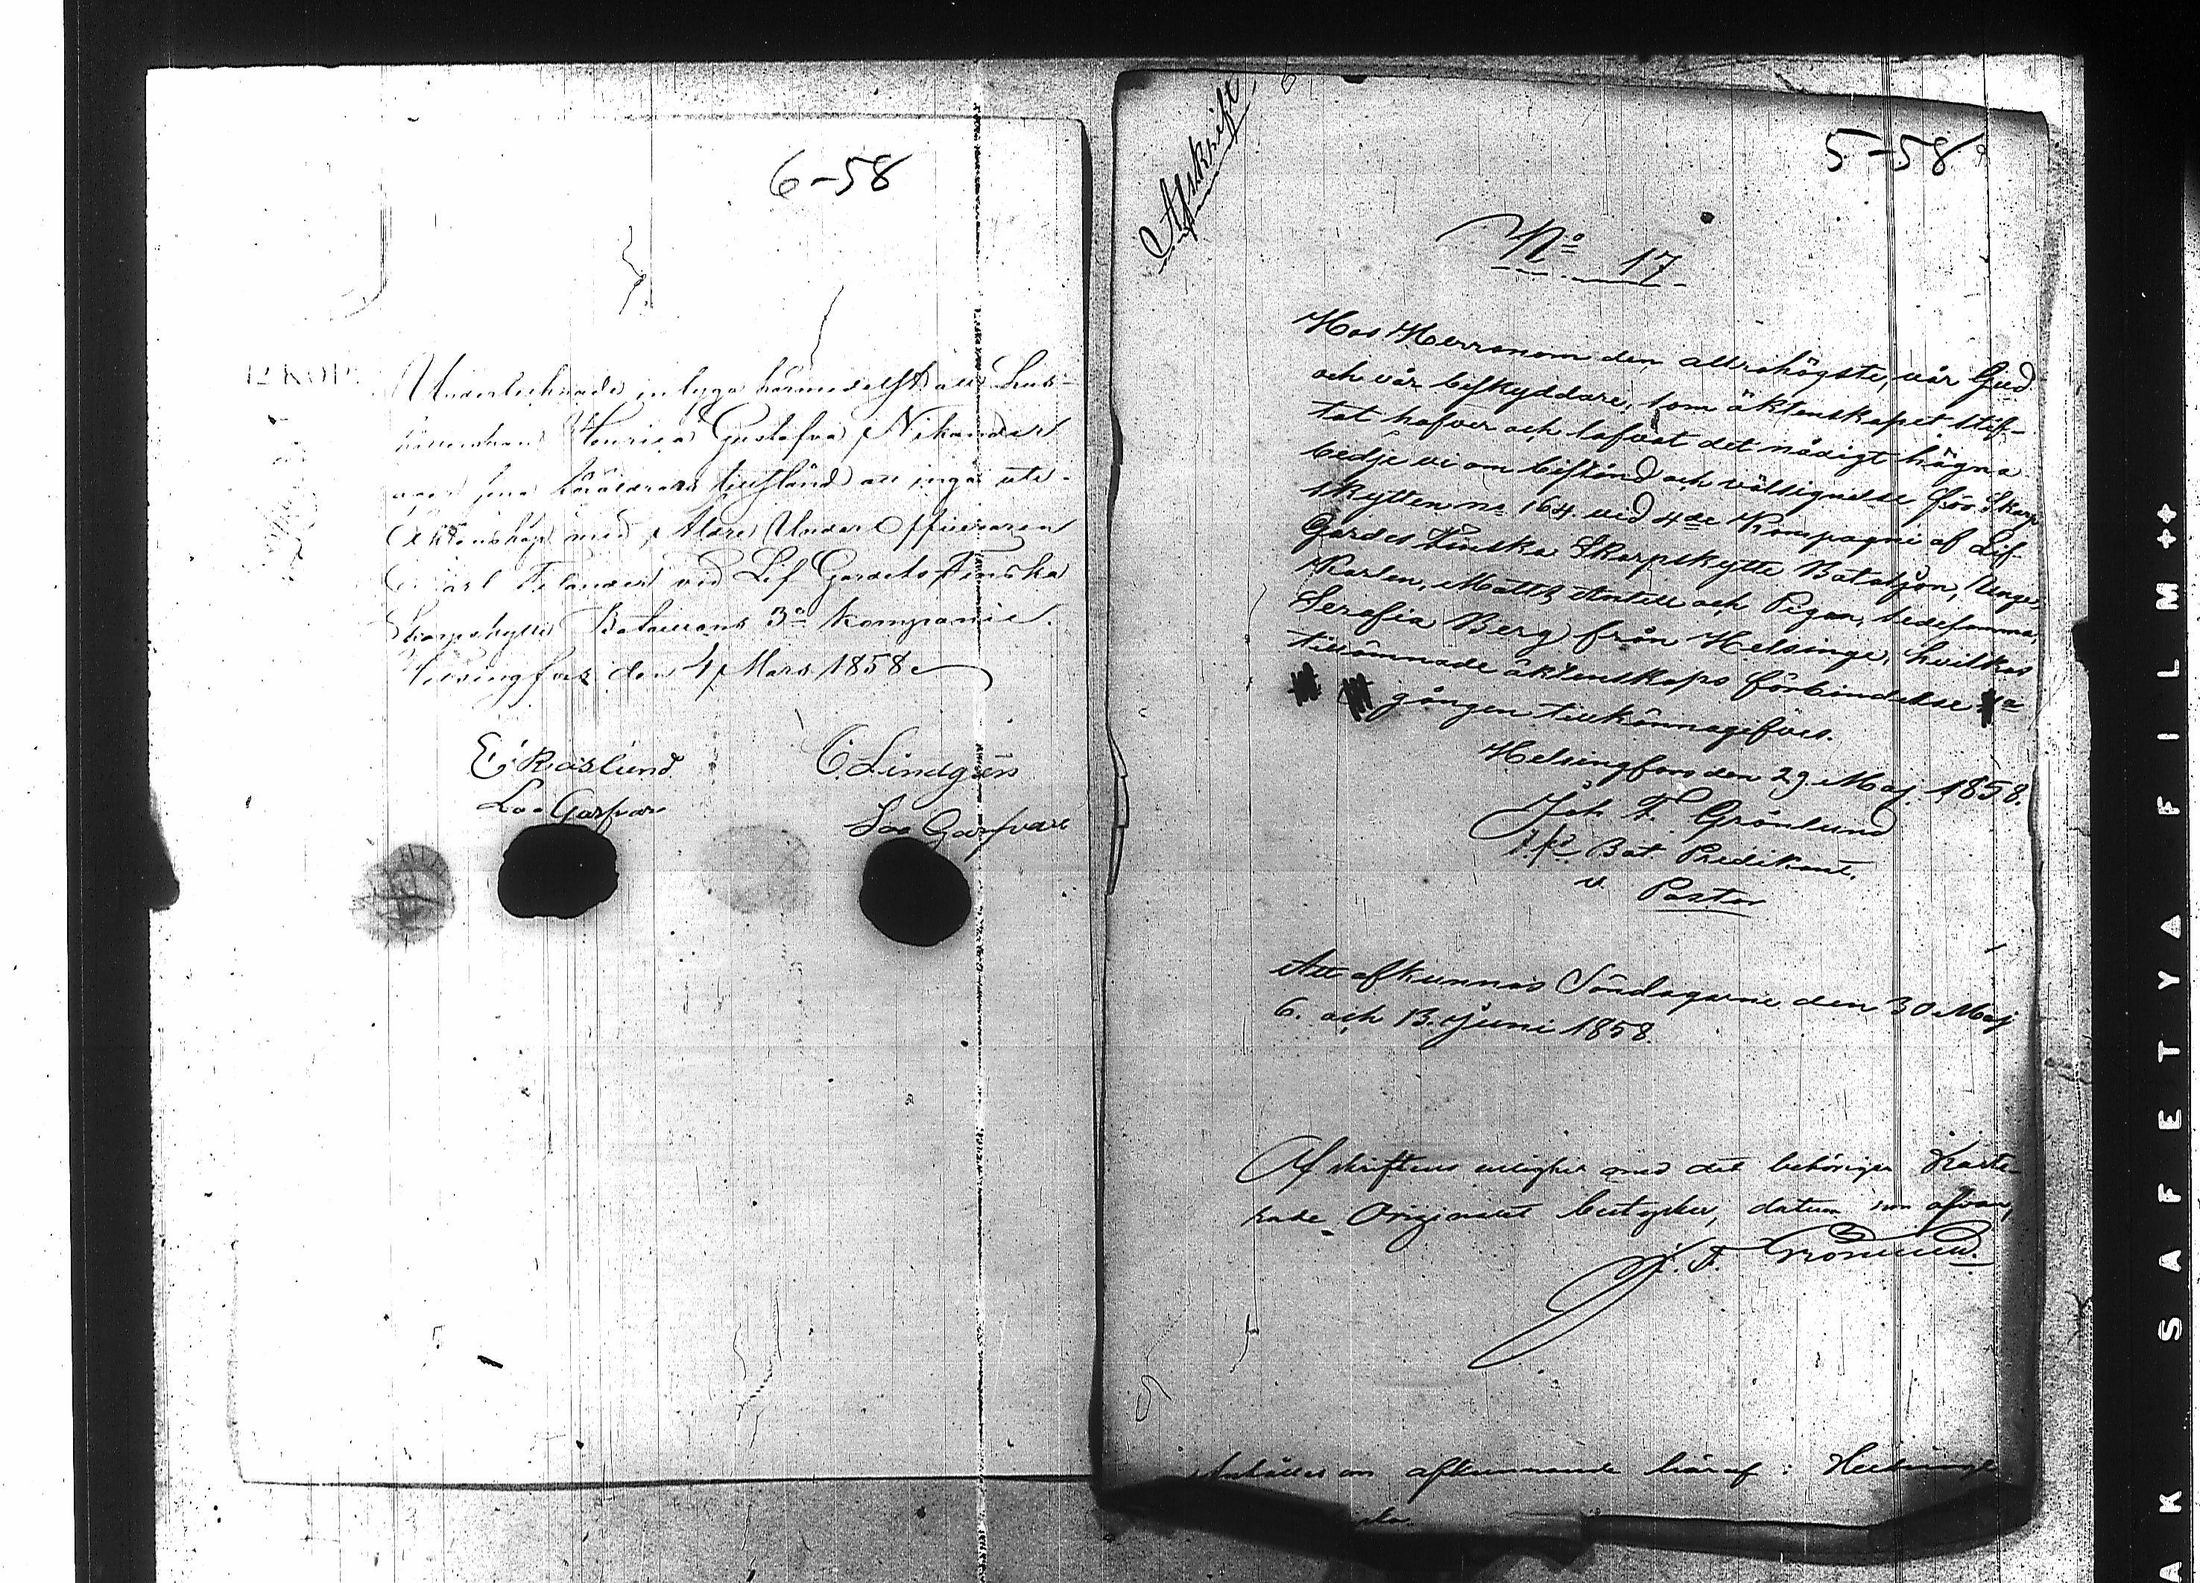 6-58
12 KOP.
Undertecknade intyga härmedelst att Hus-
Henrica Gustafva Nikander
sina föräldrars tillstånd att ingå uti
Ecktenskap med Aldre Under Officeraren
Carl Felander vid Lif Gardets Finska
Skarpskytte Bataillons 3e Kompanie.
Helsingfors den 4 Mars 1858
E: Kraslund C Lindgren
Loo Garfvare Loo Garfvare
Afskrift
5-58
No 17
Hos Herranom den allrahögste, vår Gud
och vår beskyddare, som äktenskapet stif-
tat hafver och lofvat det nådigt hägna
bedje vi om bistånd och välsignelse för Skarp
skytten No 164. vid 4de Kompagni af Lif
Gardes Finska Skarpskytte Bataljon, Unge
Karlen, Matts Antell och Pigan, Sedesamma,
Serafia Berg från Helsinge, hvilkas
tillämnade äktenskaps förbindelse
gången tillkännagifves.
Helsingfors den 29 Maj 1858.
Joh. F. Grönlund
t.f. Bat. Predikant.
v. Pastor
Att afkunnas Söndagarne den 30 Maj
6. och 13. Juni 1858.
Afskriftens enlighet med det behörigen Karte
rade Originalet betygar, datum som ofvan,
J. F. Grönlund.
Anhålles om afkunnande häraf i Helsinge